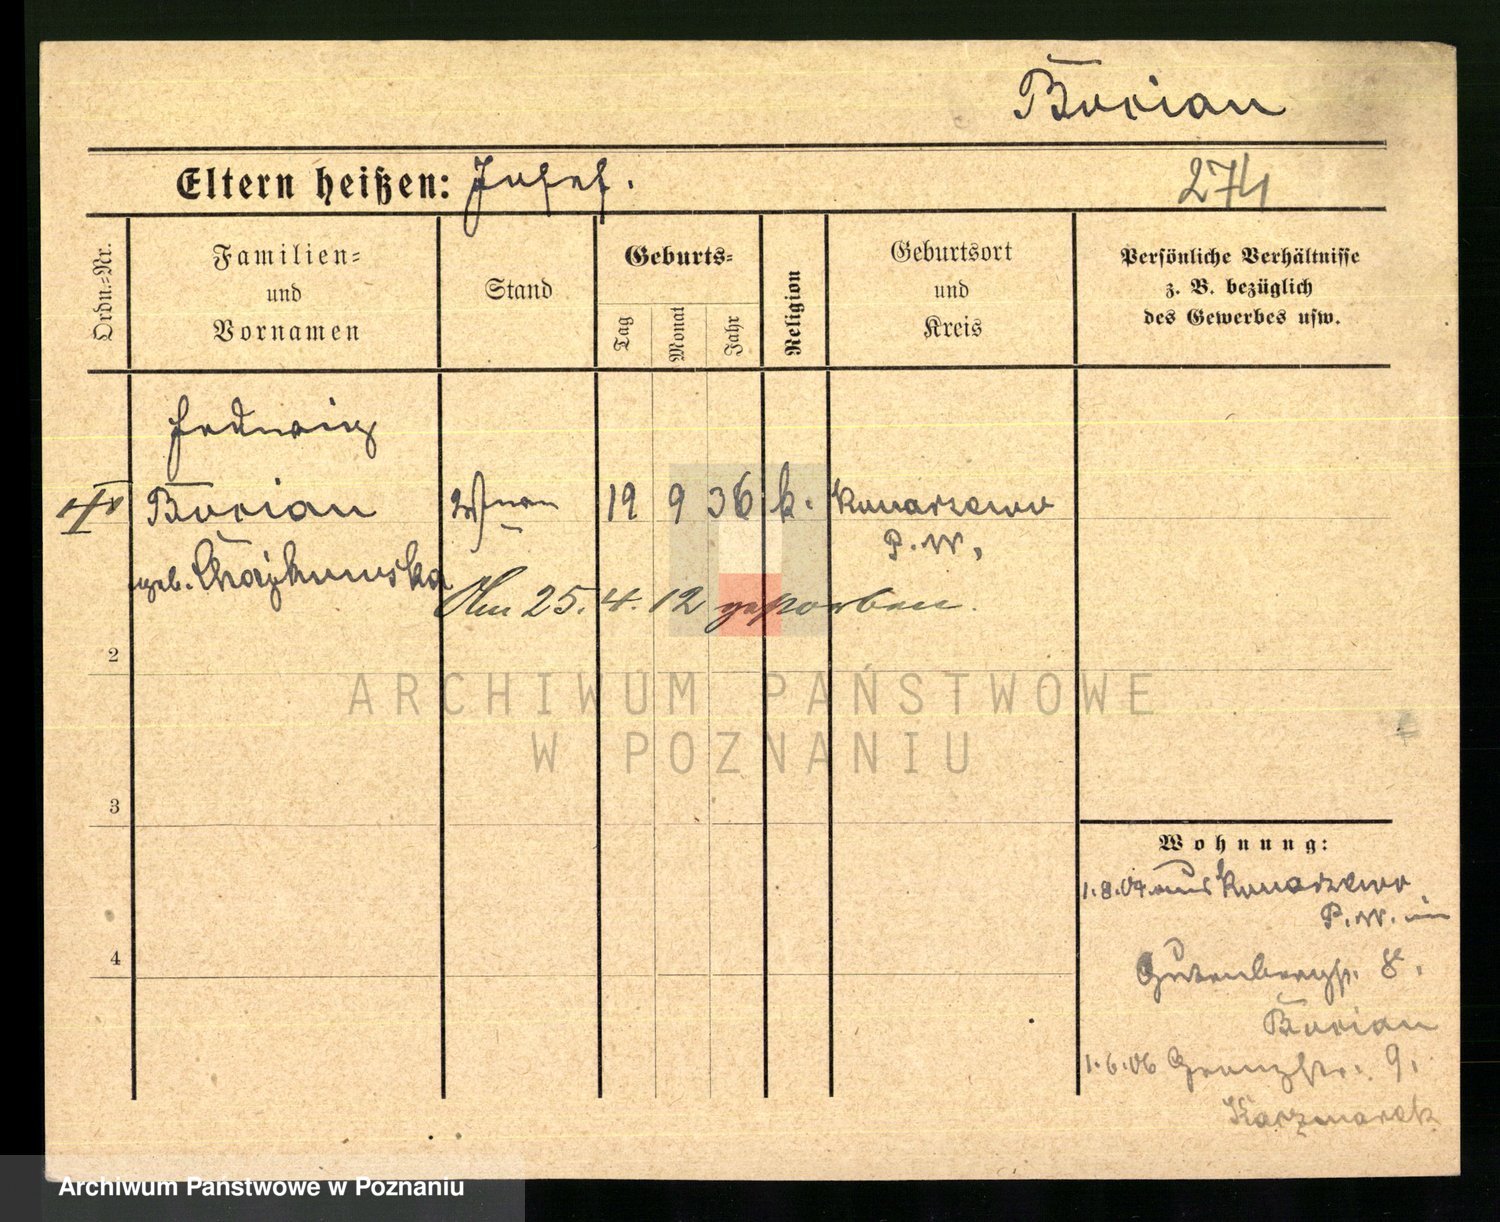 Borian
Eltern heißen: Josef.
274
Ordn.-Nr.
Familien-
und
Vornamen
Stand
Geburts-
Tag
Monat
Jahr
Religion
Geburtsort
und
Kreis
Persönliche Verhältnisse
z. B. bezüglich
des Gewerbes usw.
Hedwig
Borian
19 9 36 k. Konarzewo
P. W.
geb.
Am 25. 4. 12 gestorben.
2
3
4
ARCHIWUM PAŃSTWOWE
W POZNANIU
Wohnung:
1.8.04. aus Konarzewo
P. W. in
Gutenbergstr. 8
Borian
1.6.06 Grenzstr. 9.
Kaczmarek
Archiwum Państwowe w Poznaniu